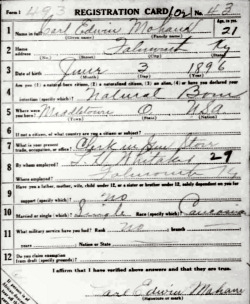 Form 1 493 REGISTRATION CARD No. 43
1 Name in full Carl Edwin Mohand Age, in yrs. 21
(Given name) (Family name)
2 Home address Falmouth Ky
3 Date of birth June 3 1896
(Month) (Day) (Year)
4 Are you (1) a natural-born citizen, (2) a naturalized citizen, (3) an alien, (4) or have you declared your
intention (specify which)? Natural Born
5 Where were you born? Middletown O USA
(Town) (State) (Nation)
6 If not a citizen, of what country are you a citizen or subject?
7 What is your present trade, occupation, or office? Clerk in Store
8 By whom employed? Whitaker 29
Where employed? Falmouth Ky
9 Have you a father, mother, wife, child under 12, or a sister or brother under 12, solely dependent on you for
support (specify which)? no
10 Married or single (which)? Single Race (specify which)? Caucasian
11 What military service have you had? Rank no branch
years Nation or State
12 Do you claim exemption from draft (specify grounds)?
I affirm that I have verified above answers and that they are true.
Carl Edwin Mohand
(Signature or mark)